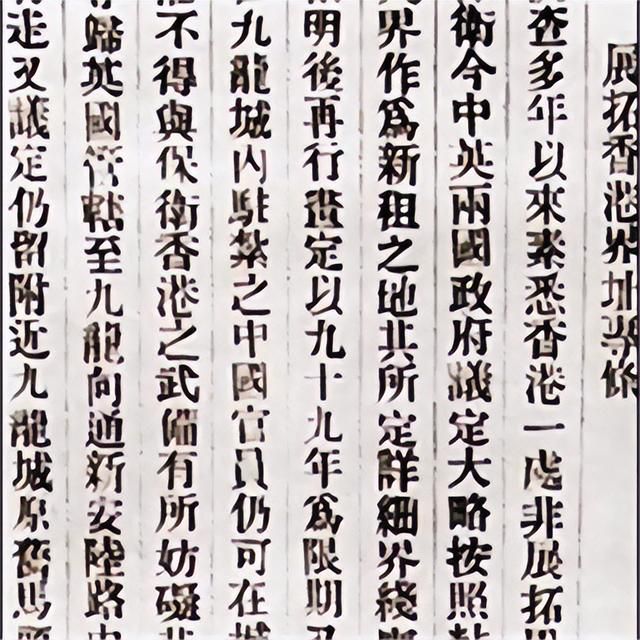 展拓香港界址專條
查多年以來素悉香港一處非展拓
衛今中英兩國政府議定大略按照
界作為新租之地其所定詳細界綫
明後再行畫定以九十九年為限期又
九龍城內駐紮之中國官員仍可在城
不得與保衛香港之武備有所妨礙其
歸英國管轄至九龍向通新安陸路
走又議定仍留附近九龍城原舊馬